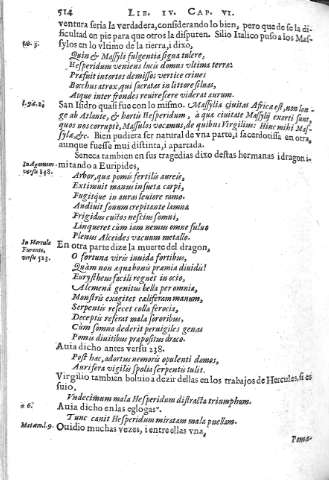 514 LIB. IV. CAP. VI.
ventura seria la verdadera, considerando lo bien, pero que de se la di-
ficultad en pie para que otros la disputen. Silio Italico puso a los Mas-
sylos en lo vltimo de la tierra, i dixo,
Quin & Massyli fulgentia signa tulere,
Hesperidum veniens lucis domus vltima terræ:
Præfuit intortos demissus vertice crines
Bocchus atrox, qui sacratas in littore siluas,
Atque inter frondes reuirescere viderat aurum.
San Isidro quasi fue con lo mismo. Massylia ciuitas Africæ est, non lon-
ge ab Atlante, & hortis Hesperidum, a qua ciuitate Massylij exorti sunt,
quos nos corruptè, Massulos vocamus, de quibus Virgilius: Hinc mihi Mas-
sylæ &c. Bien pudiera ser natural de vna parte, i sacerdotissa en otra,
aunque fuesse mui distinta, i apartada.
Seneca tambien en sus tragedias dixo destas hermanas i dragon i-
mitando a Euripides,
Arbor, que pomis fertilis aureis,
Extimuit manus insueta carpi,
Fugitque in auras leuiore ramo.
Audiuit sonum crepitante lamna
Frigidus custos nescius somni,
Linqueret cum iam nemus omne fuluo
Plenus Alcides vacuum metallo.
En otra parte dize la muerte del dragon,
O fortuna viris inuida fortibus,
Quàm non æqua bonis præmia diuidis!
Eurystheus facili regnet in ocio,
Alcmena genitus bella per omnia,
Monstris exagitet cæliferam manum,
Serpentis resecet colla ferocis,
Deceptis referat mala sororibus,
Cum somno dederit peruigiles genas
Pomis diuitibus præpositus draco.
Auia dicho antes versu 238.
Post hac, adortus nemoris opulenti domos,
Aurifera vigilis spolia serpentis tulit.
Virgilio tambien boluio a dezir dellas en los trabajos de Hercules, si es
suio,
Vndecimum mala Hesperidum distracta triumphum.
Auia dicho en las eglogas
Tunc canit Hesperidum miratam mala puellam.
Ouidio muchas vezes, i entre ellas vna,
Poma-
l. 9. c. 2.
In Agamem.
In Hercule
Furente,
versu 523.
Metam. l. 9.